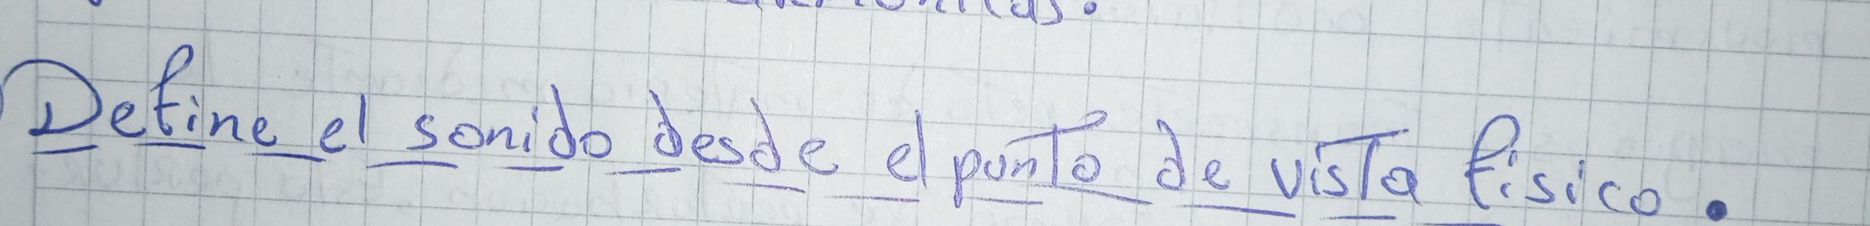 Define el sonido desde el punto de vista físico.